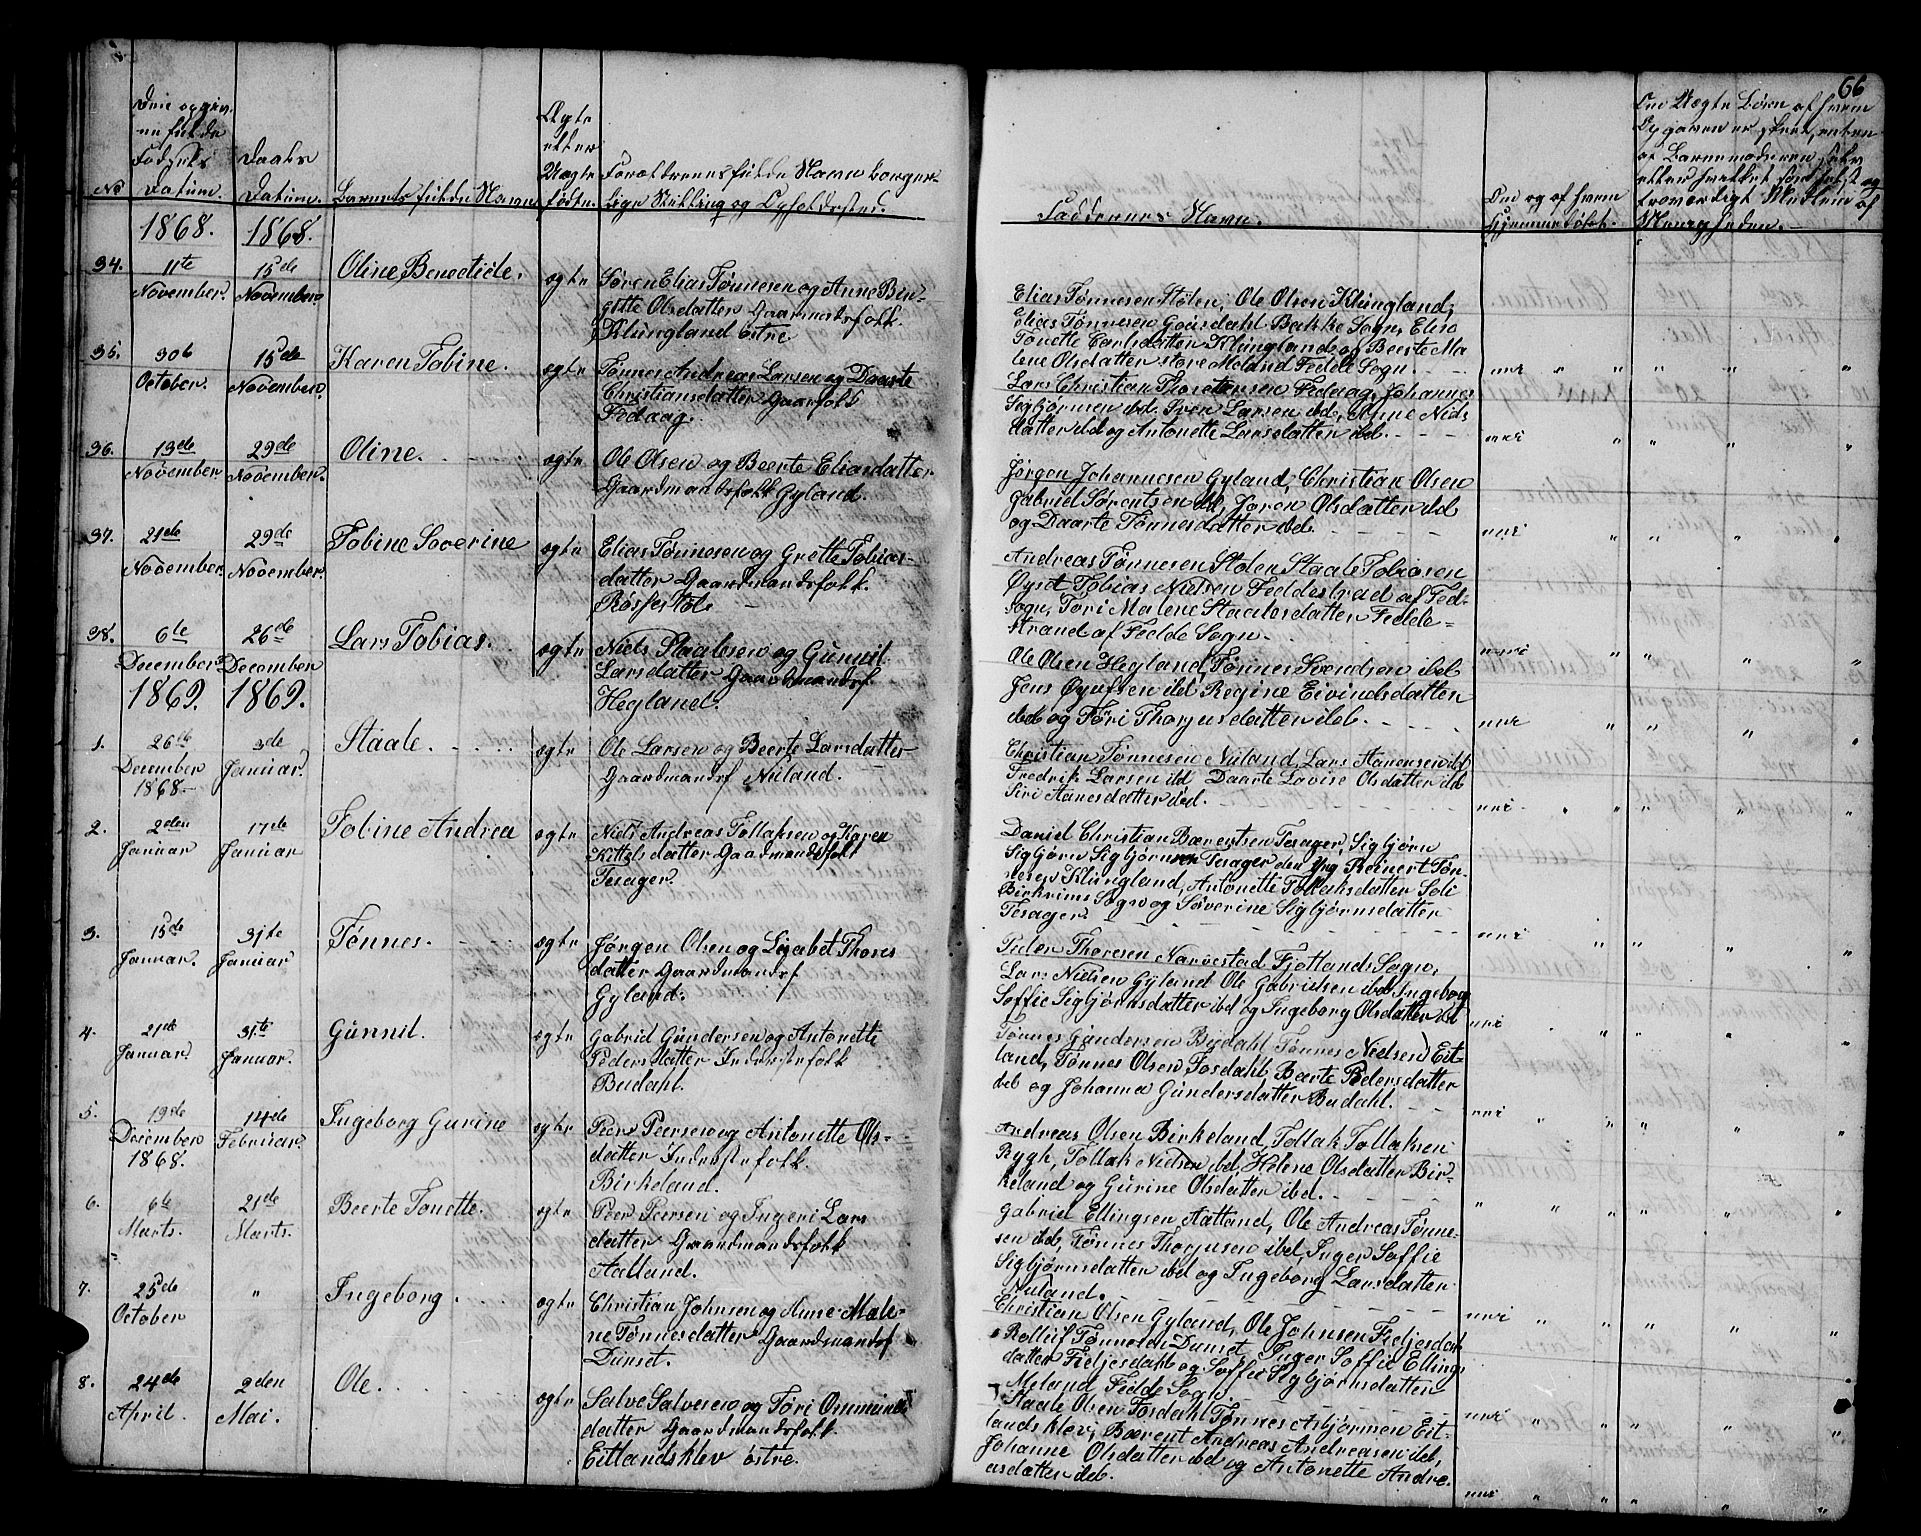 66
No
Den opgiv-
ne fulde
Fødsels
Datum.
Daabs
Datum.
Barnets fulde Navn
Ægte
eller
Uægte
fødte.
Forældrenes fulde Navn borger-
lige Stilling og Opholdssted.
Faddernes Navn.
Om og af hvem
Hjemmedøbt.
Om Uægte Børn af hvem
Opgaven er skeet, enten
af Barnemoderen selv
eller hvilket fornufligt og
troværdigt Medlem af
Menigheden.
1868. 1868.
34. 11te November. 15de November Oline Benedicte. ægte
Søren Elias Tønnesen og Anne Bir-
gitte Olsdatter Gaarmandsfolk.
Klungland østre
Elias Tønnesen Stølen, Ole Olsen Klungland,
Elias Tønnesen Gousdahl Bakke Sogn, Elisa
Tonette Carlsdatter Klungland og Beerte Ma
lene Olsdatter store Meland Fedde Sogn.
35. 30te October. 15de November. Karen Tobine. ægte
Tønnes Andreas Larsen og Daarte
Christiansdatter Gaarfolk
Fedaag.
Lars Christian Thorstensen Fedaag, Johannes
Sigbjørnsen ibd. Sven Larsen ibd, Anne Niels
datter ibd og Antonette Larsdatter ibd.
36. 13de November 29de November. Oline. ægte
Ole Olsen og Beerte Eliasdatter
Gaardmandsfolk Gyland.
Jørgen Johannesen Gyland, Christian Olsen
Gabriel Sørentsen ibd, Joren Olsdatter ibd
og Daarte Tønnesdatter ibd.
37. 21de November. 29de November. Tobine Severine ægte
Elias Tønnesen og Grette Tobias-
datter Gaardmandsfolk.
Røssestøl
Andreas Tønnesen Stølen Staale Tobiasen
Øysæt Tobias Nielsen Feddestrad af Fed-
Sogn, Tori Malene Staalesdatter Fedde-
strand af Fedde Sogn.
38. 6te December. 26de December Lars Tobias. ægte
Niels Staalesen og Gunnil
Larsdatter Gaardmandsf
Hegland.
Ole Olsen Hegland, Tønnes Svendsen ibd
Jens Øyufsen ibd Regine Eivindsdatter
ibd og Tøri Thorjusdatter ibd.
1869. 1869.
1. 26de December 1868. 3de Januar. Staale. ægte
Ole Larsen og Beerte Larsdatter
Gaardmandsf Nuland.
Christian Tønnesen Nuland, Lars Aanensen ibd
Fredrik Larsen ibd Daarte Lovise Olsdatter ibd
Siri Aanesdatter ibd.
2. 2den Januar 17de Januar Tobine Andrea ægte
Niels Andreas Tollaksen og Karen
Kittelsdatter Gaardmandsfolk
Tesager.
Daniel Christian Bærentsen Tesager, Sigbjørn
Sigbjørnsen Tesager den Yng Reinert Tøn-
nesen Klungland, Antonette Tollaksdatter Soli
Birkrims Sogn og Severine Sigbjørnsdatter
Tesager.
3. 15de Januar. 31te Januar Tønnes. ægte
Jørgen Olsen og Lisabet Thores
datter Gaardmandsf
Gyland.
Peder Thoresen Narvestad Fjotlands Sogn,
Lars Nielsen Gyland Ole Gabrielsen ibd Ingeborg
Soffie Sigbjørnsdatter ibd og Ingeborg Olsdatter ibd
4. 21de Januar. 31te Januar. Gunnil. ægte
Gabriel Gundersen og Antonette
Pedersdatter Inderstefolk
Budahl.
Tønnes Gundersen Budahl Tønnes Nielsen Eit-
land, Tønnes Olsen Fosdahl Bærte Pedersdatter
ibd og Johanna Gundersdatter Budahl.
5. 19de December 1868. 14de Februar. Ingeborg Gurine ægte
Peer Peersen og Antonette Ols-
datter Inderstefolk
Birkeland.
Andreas Olsen Birkeland, Tollak Tollaksen
Rygh, Tollak Nielsen ibd, Helene Olsdatter Bir-
keland og Gurine Olsdatter ibd.
6. 6te Marts. 21de Marts. Beerte Tonette. ægte
Peer Peersen og Ingeri Lars
datter Gaardmandsfolk
Aatland.
Gabriel Ellingsen Aatland, Ole Andreas Tønne-
sen ibd, Tønnes Thorjusen ibd, Inger Soffie
Sigbjørnsdatter ibd og Ingeborg Larsdatter
Nuland.
7. 25de October " Ingeborg. ægte
Christian Johnsen og Anne Male-
ne Tønnesdatter Gaardmandsf
Dunset.
Christian Olsen Gyland, Ole Johnsen Fieljesdahl
Rolluf Tønnesen Dunset, Inger Soffie Ellings
datter Fieljesdahl og Soffie Sigbjørnsdatter
Meland Fedde Sogn.
8. 24de April. 2den Mai. Ole. ægte
Salve Salvesen og Tøri Ommunds
datter Gaardmandsfolk.
Eitlandsklev østre.
Staale Olsen Fosdahl Tønnes Asbjørnsen Eit-
landsklev, Bærent Andreas Andreasen ibd,
Johanne Olsdatter ibd og Antonette Andre-
asdatter ibd.